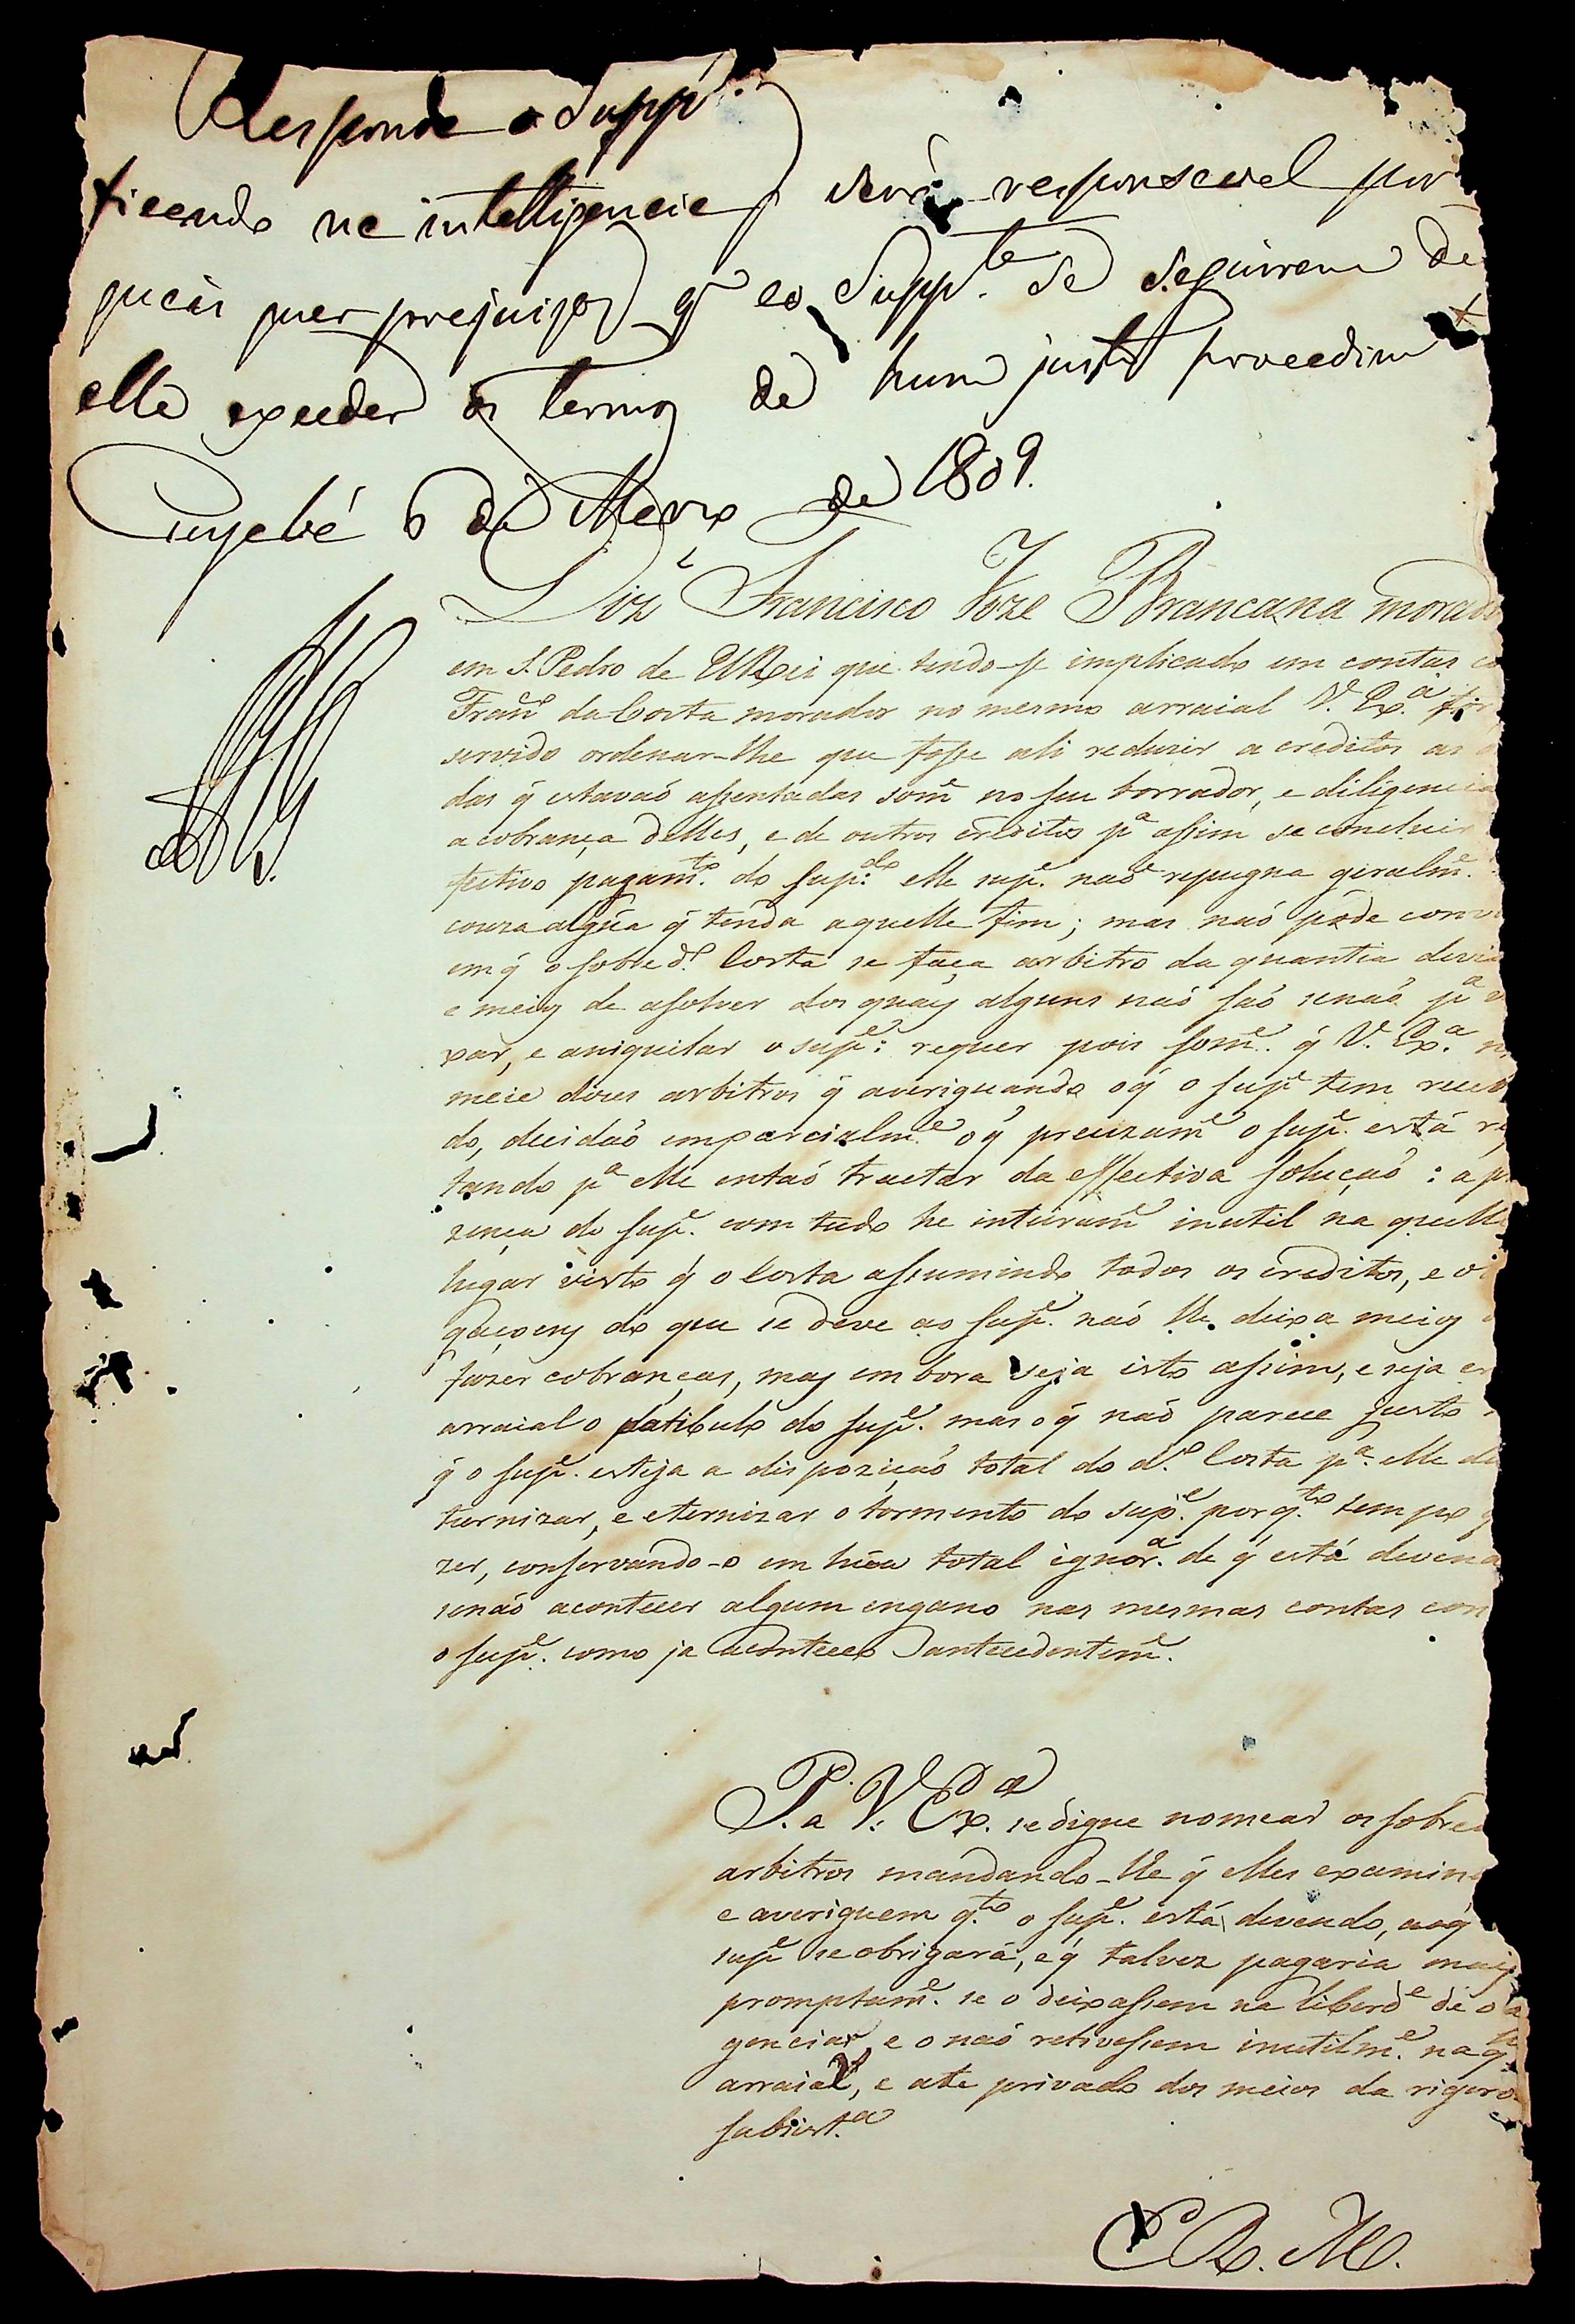 Responde o Supp.
ficando na intelligencia q será responsavel por
quaes quer prejuizos q ao Supp.te se seguirem de
elle exceder os termos de hum justo procedim
Cuyabá 6 de Março de 1809.
Diz Francisco Joze Brancana morado
em S. Pedro de ElRei que tendo-se implicado em contas co
Fran.co da Costa morador no mesmo arraial V. Ex.a foi
servido ordenar-lhe que fosse ali reduzir a creditos as
das q̃ estavaõ assentadas som.e no seu borrador, e diligencia
a cobrança delles, e de outros creditos p.a assim se concluir
fectivo pagam.to do sup.do elle sup.e naõ repugna geralm.e
couza algũa q̃ tenda aquelle fim; mas naõ póde convi
em q̃ o sobred.o Costa se faça arbitro da quantia devid
e meios de asolver dos quaes alguns naõ saõ senaõ p.a
xar, e aniquilar o sup.e: requer pois som.e q̃ V. Ex.a no
meie dous arbitros q̃ averiguando o q̃ o sup.e tem receb
do, decidaõ imparcialm.e o q̃ precizam.e o sup.e está re
tando p.a elle entaõ tractar da effectiva soluçaõ: a pr
zença do sup.e com tudo he inteiram.e inutil na quelle
lugar visto q̃ o Costa assumindo todos os creditos, e o
gaçoens do que se deve ao sup.e naõ lhe deixa meios
fazer cobranças, mas embora seja isto assim, e seja
arraial o patibulo do sup.e mas o q̃ naõ parece justo
q̃ o sup.e esteja a dispoziçaõ total do d.o Costa p.a elle di
turnizar, e eternizar o tormento do sup.e por q.to tempo q
zer, conservando-o em hũa total ignor.a de q̃ está deven
senaõ acontecer algum engano nas mesmas contas con
o sup.e como ja aconteceo antecedentem.e
P. a V. Ex.a se digne nomear os sobre
arbitros mandando-lhe q̃ elles examin
e averiguem q.to o sup.e está devendo, ao q̃
sup.e se obrigará, e q̃ talvez pagaria mais
promptam.e se o deixassem na liberd.e de o a
genciar, e o naõ retivessem inutilm.e na q.le
arraial, e ate privado dos meios da rigoro
subsist.a
E R. M.